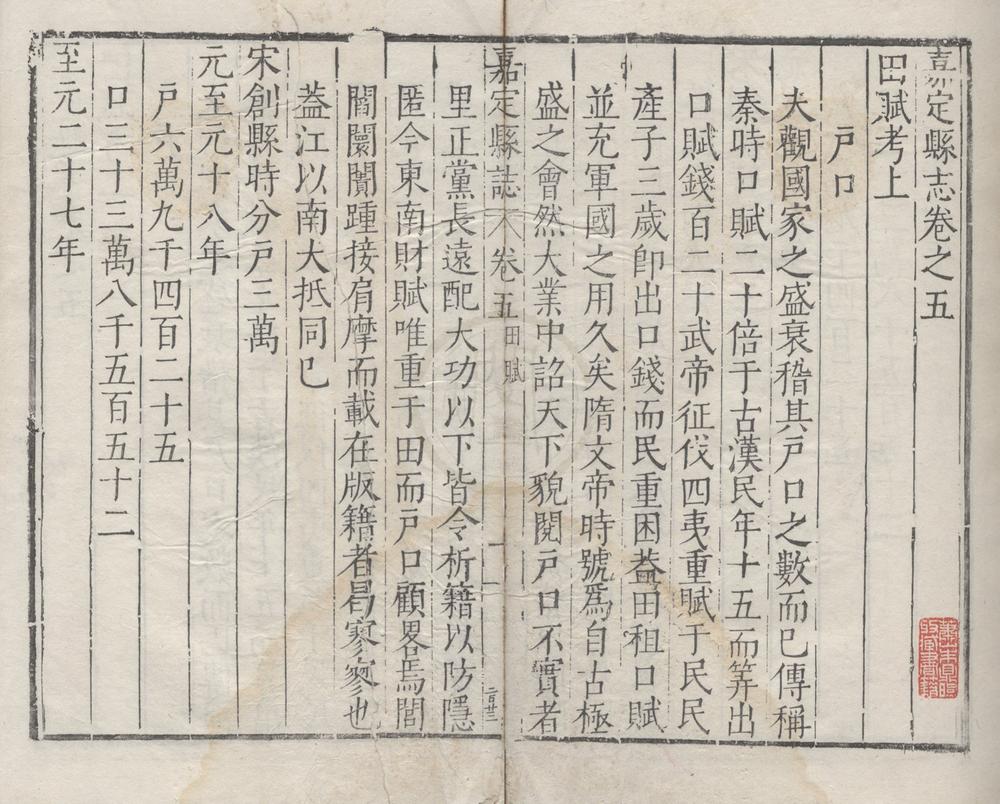 嘉定縣志卷之五
田賦考上
戶口
夫觀國家之盛衰稽其戶口之數而已傳稱
秦時口賦二十倍于古漢民年十五而筭出
口賦錢百二十武帝征伐四夷重賦于民民
產子三歲卽出口錢而民重困葢田租口賦
並充軍國之用久矣隋文帝時號爲自古極
盛之會然大業中詔天下貌閱戶口不實者
嘉定縣誌 卷五 田賦 一
里正黨長遠配大功以下皆令析籍以防隱
匿今東南財賦唯重于田而戶口顧畧焉閭
閻闤闠踵接肩摩而載在版籍者曷寥寥也
葢江以南大抵同已
宋創縣時分戶三萬
元至元十八年
戶六萬九千四百二十五
口三十三萬八千五百五十二
至元二十七年